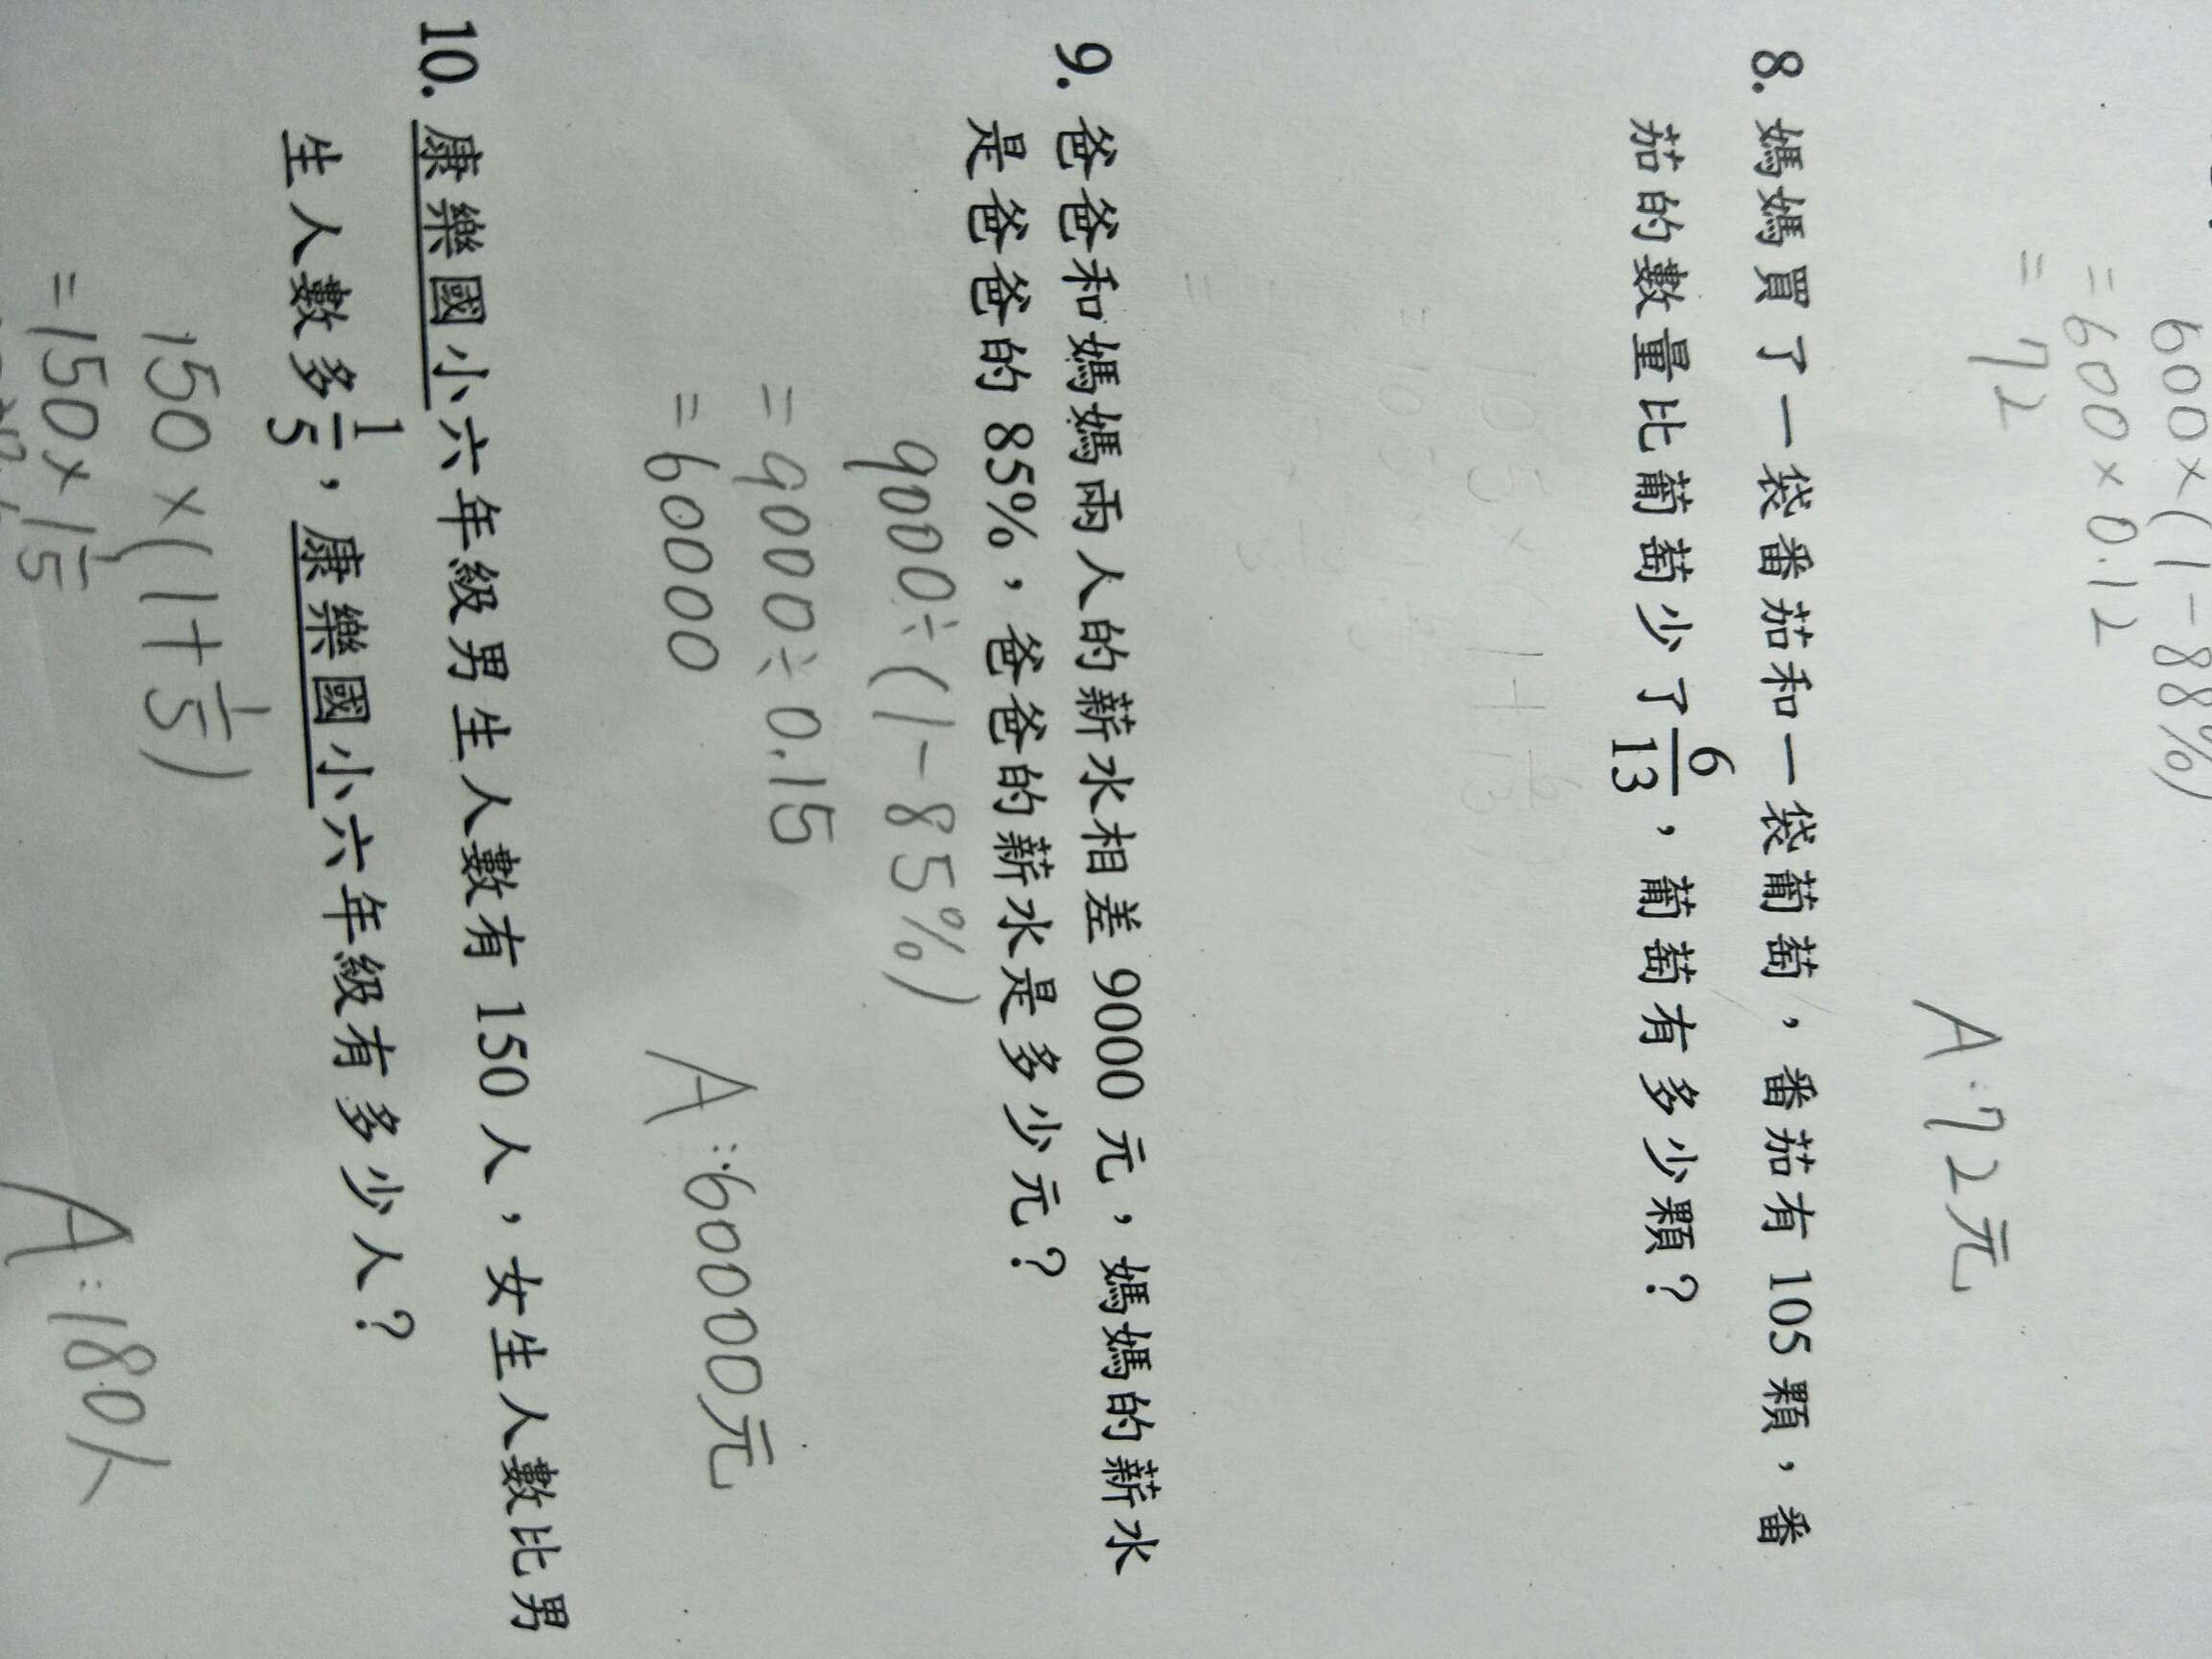 600×(1-88%)
=600×0.12
=72
A:72元
8. 媽媽買了一袋番茄和一袋葡萄，番茄有 105 顆，番
茄的數量比葡萄少了6/13，葡萄有多少顆？
9. 爸爸和媽媽兩人的薪水相差 9000 元，媽媽的薪水
是爸爸的 85%，爸爸的薪水是多少元？
9000÷(1-85%)
=9000÷0.15
=60000
A:60000元
10. 康樂國小六年級男生人數有 150 人，女生人數比男
生人數多1/5，康樂國小六年級有多少人？
150×(1+1/5)
=150×1 1/5
A:180人